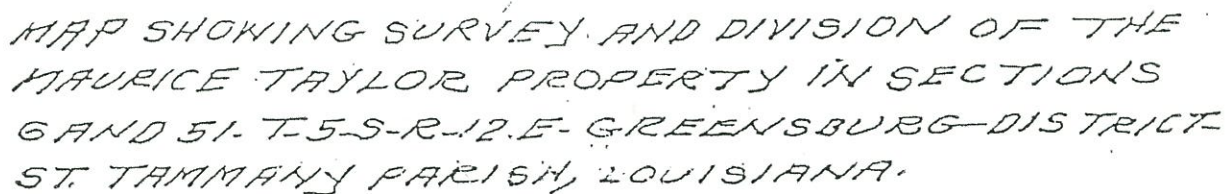 MAP SHOWING SURVEY AND DIVISION OF THE
MAURICE TAYLOR PROPERTY IN SECTIONS
6 AND 51-T-5-S-R-12.E-GREENSBURG-DISTRICT-
ST. TAMMANY PARISH, LOUISIANA.